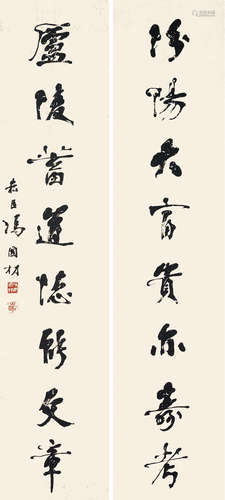 汾陽大富貴亦壽考
廬陵蓄道德能文章
袁臣馮國材